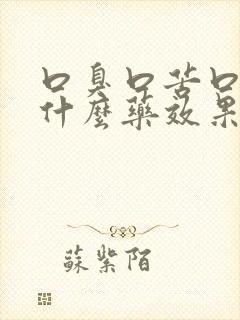 口臭口苦口
什麼藥效果
蘇紫陌